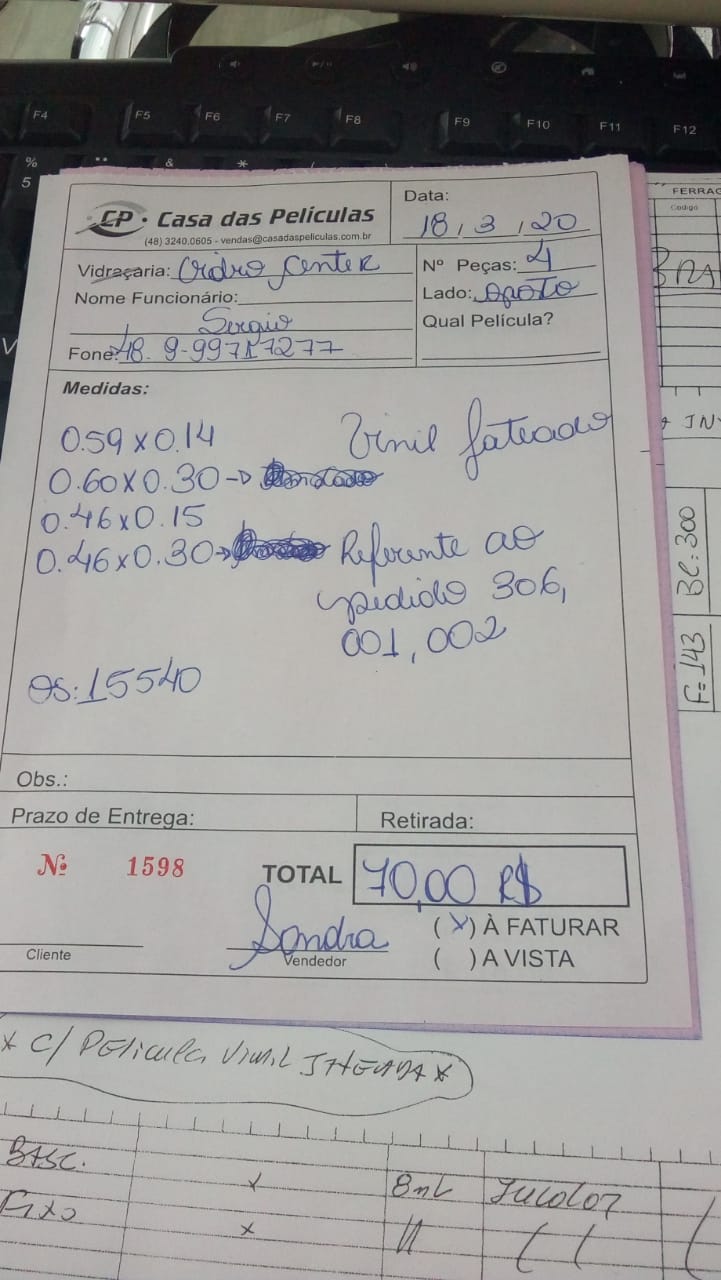 F4 F5 F6 F7 F8 F9 F10 F11 F12
% 5 & *
CP · Casa das Películas
(48) 3240.0605 - vendas@casadaspeliculas.com.br
Data:
18 / 3 / 20
Vidraçaria: Vidro Center
Nome Funcionário:
Sergio
Fone: 48. 9-99717277
Nº Peças: 4
Lado: oposto
Qual Película?
Medidas:
0.59 x 0.14
0.60 x 0.30 →
0.46 x 0.15
0.46 x 0.30 →
Vinil fateado
Referente ao
pedido 306,
001, 002
OS: 15540
Obs.:
Prazo de Entrega:
Retirada:
Nº 1598
TOTAL 70,00 R$
Sandra
Cliente
Vendedor
(X) À FATURAR
( ) A VISTA
FERRAG
Codigo
BRA
Be: 300
F= 143
* C/ PELICULA VINIL JATEADA *
BASC. x 8mL Incolor
Fixo x 11